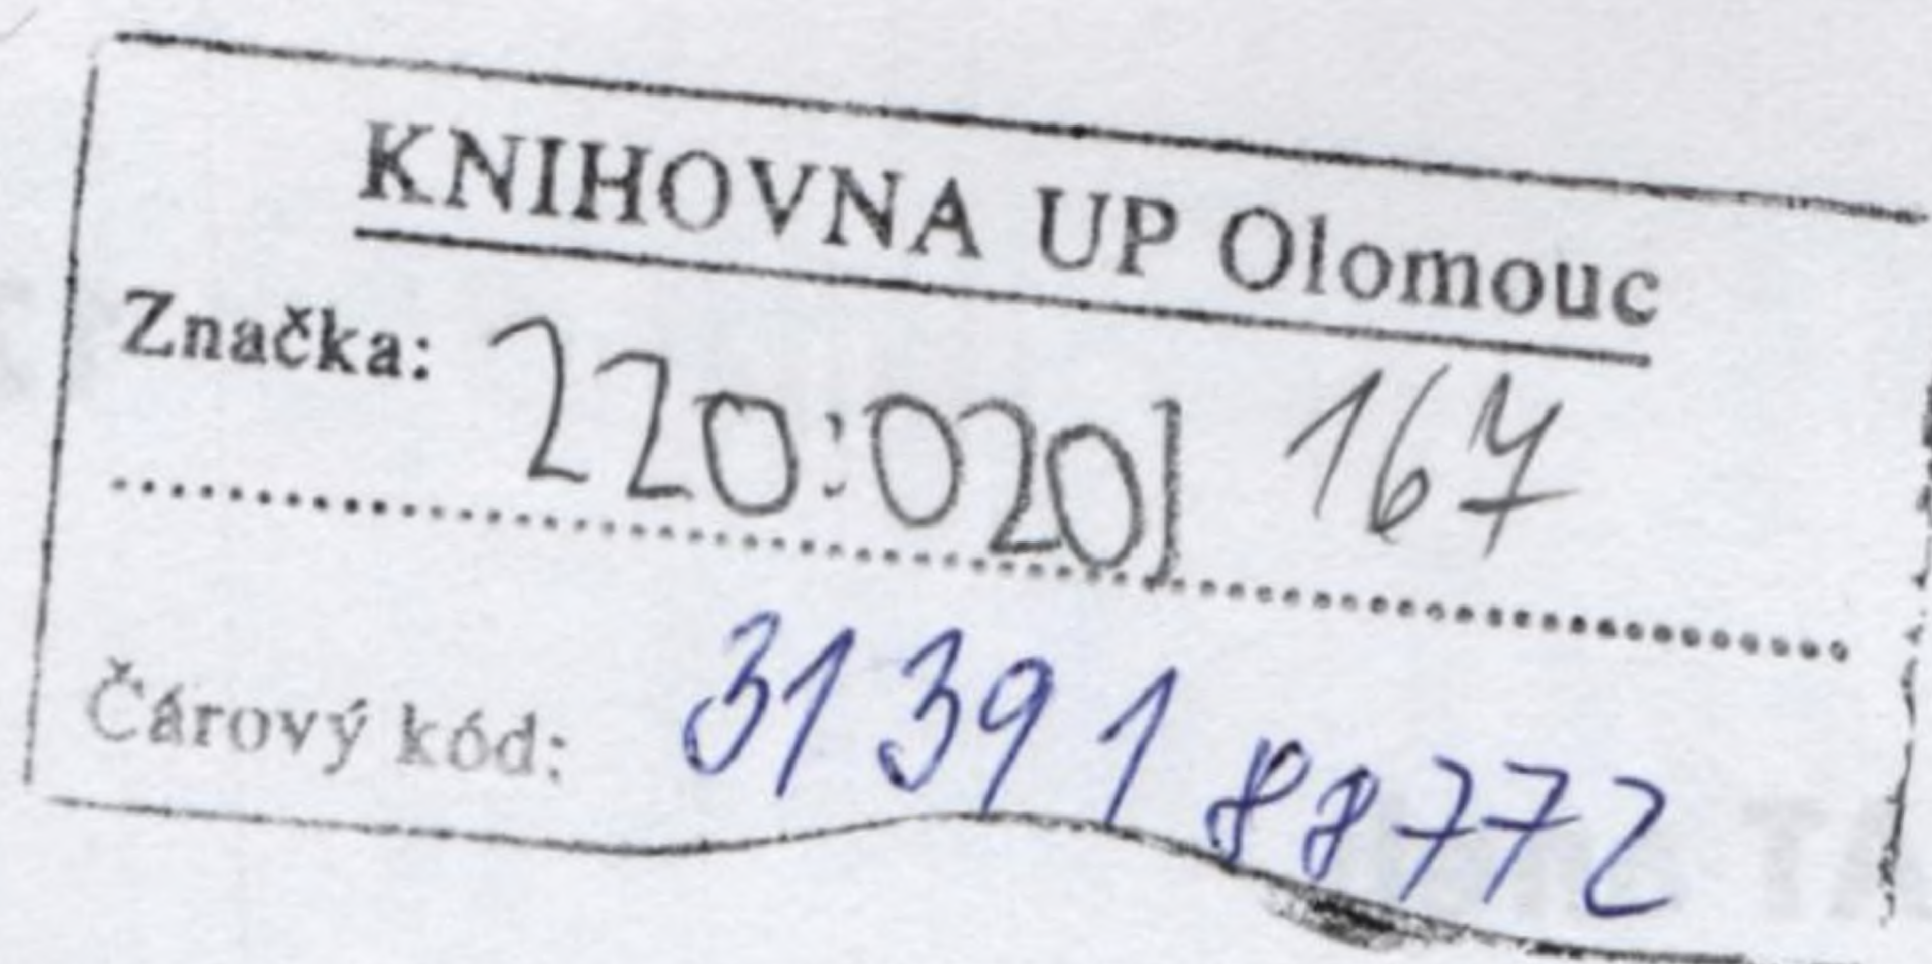 KNIHOVNA UP Olomouc
Značka: 220:020] 167
Čárový kód: 31391 88772